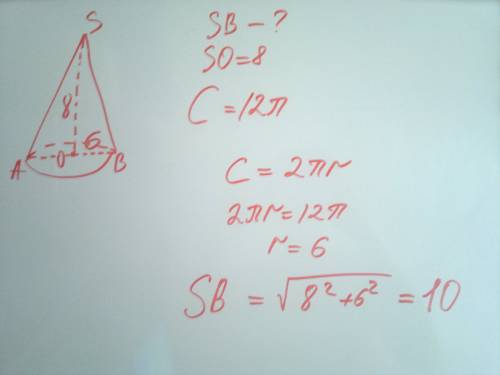 S
8
6
A
O
B
SB - ?
SO = 8
C = 12π
C = 2πr
2πr = 12π
r = 6
SB = √8² + 6² = 10